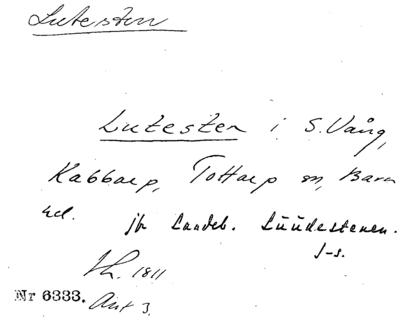 Lutesten
Lutesten i S. Vång,
Kabbarp, Tottarp sn, Bara
hd. jfr Landeb. Luudestenen.
J-s.
Sk. 1811
Nr 6333. Akt 3.